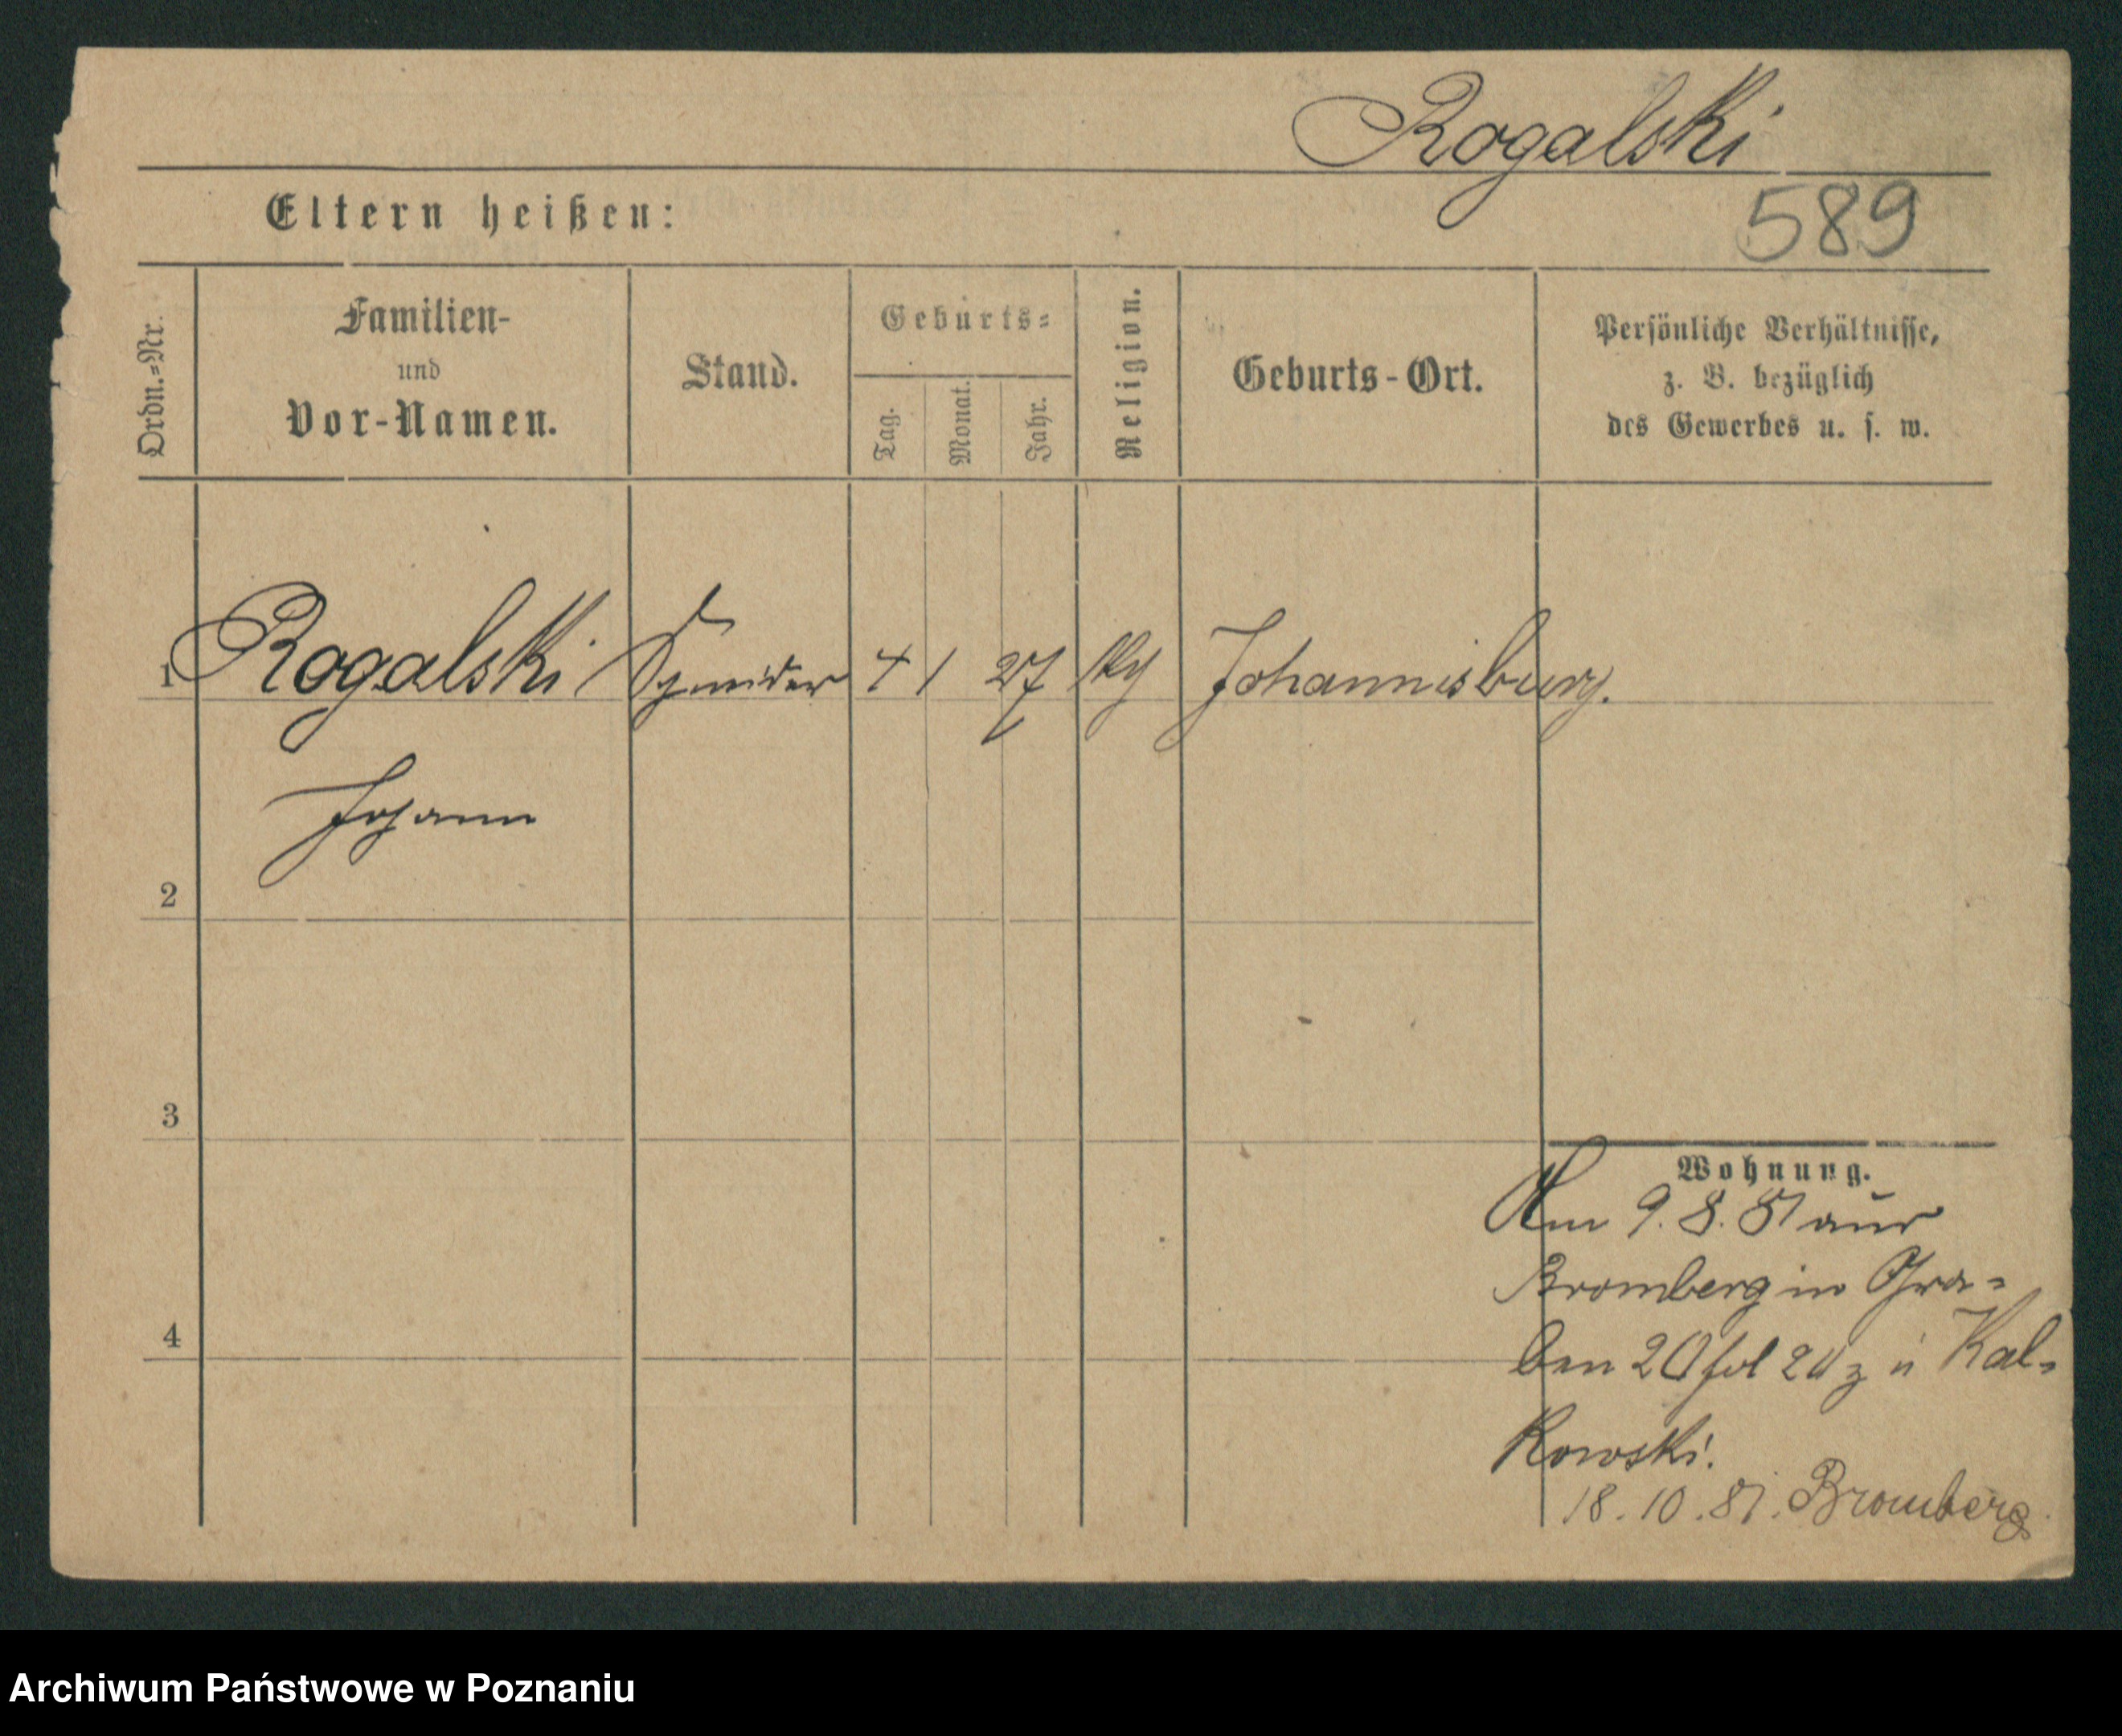 Rogalski
Eltern heißen:
589
Ordn.=Nr.
Familien-
und
Vor-Namen.
Stand.
Geburts=
Tag.
Monat.
Jahr.
Religion.
Geburts-Ort.
Persönliche Verhältnisse,
z. B. bezüglich
des Gewerbes u. s. w.
1 Rogalski Schneider 4 1 27 Johannisburg.
Johann
2
3
4
Wohnung.
Am 9. 8. 81 aus
Bromberg in Gra=
ben 20 Kal=
kowski.
18. 10. 81. Bromberg.
Archiwum Państwowe w Poznaniu